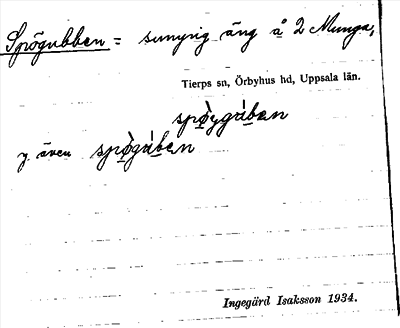 Spögubben = sumpig äng å 2 Munga,
Tierps sn, Örbyhus hd, Uppsala län.
spø̀ygúban
y. även spø̀gúban
Ingegärd Isaksson 1934.